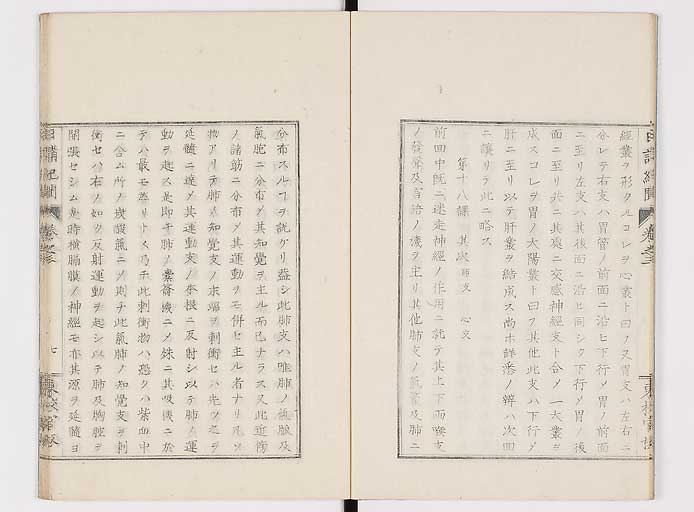 經叢ヲ形クルコレヲ心叢ト曰フ又胃支ハ左右ニ
分レテ右支ハ胃管ノ前面ニ沿ヒ下行メ胃ノ前面
ニ至リ左支ハ其後面ニ沿ヒ同シク下行メ胃ノ後
面ニ至リ共ニ其處ニ交感神經支ト合メ一大叢ヲ
成スコレヲ胃ノ大陽叢ト曰フ其他此支ハ下行メ
肝ニ至リ以テ肝叢ヲ結成ス尚ホ詳悉ノ辨ハ次回
ニ讓リテ此ニ略ス
第十八課 其次 肺支 心支
前回中既ニ迷走神經ノ作用ニ就テ其上下兩喉支
ノ發聲及言語ノ機ヲ主リ其他肺支ノ氣管及肺ニ
分布スルヿヲ説ケリ蓋シ此肺支ハ唯肺ノ血脈及
氣胞ニ分布メ其知覺ヲ主ル而已ナラス又此近傍
ノ諸筋ニ分布メ其運動ヲモ併セ主ル者ナリ凡ソ
物アリテ肺ノ知覺支ノ末端ヲ刺衝セハ先ツ之ヲ
延髓ニ達メ其運動支ノ本根ニ反射シ以テ肺ノ運
動ヲ起ス是即チ肺ノ機ニメ殊ニ其吸機ニ於
テハ最モ然リトス乃チ此刺衝物ハ恐クハ紫血中
ニ含ム所ノ炭酸氣ニメ則チ此氣肺ノ知覺支ヲ刺
衝セハ右ノ如ク反射運動ヲ起シ以テ肺及胸腔ヲ
開張セシム是時橫膈膜ノ神經モ亦其源ヲ延髓ヨ
日講紀聞 卷之三 七